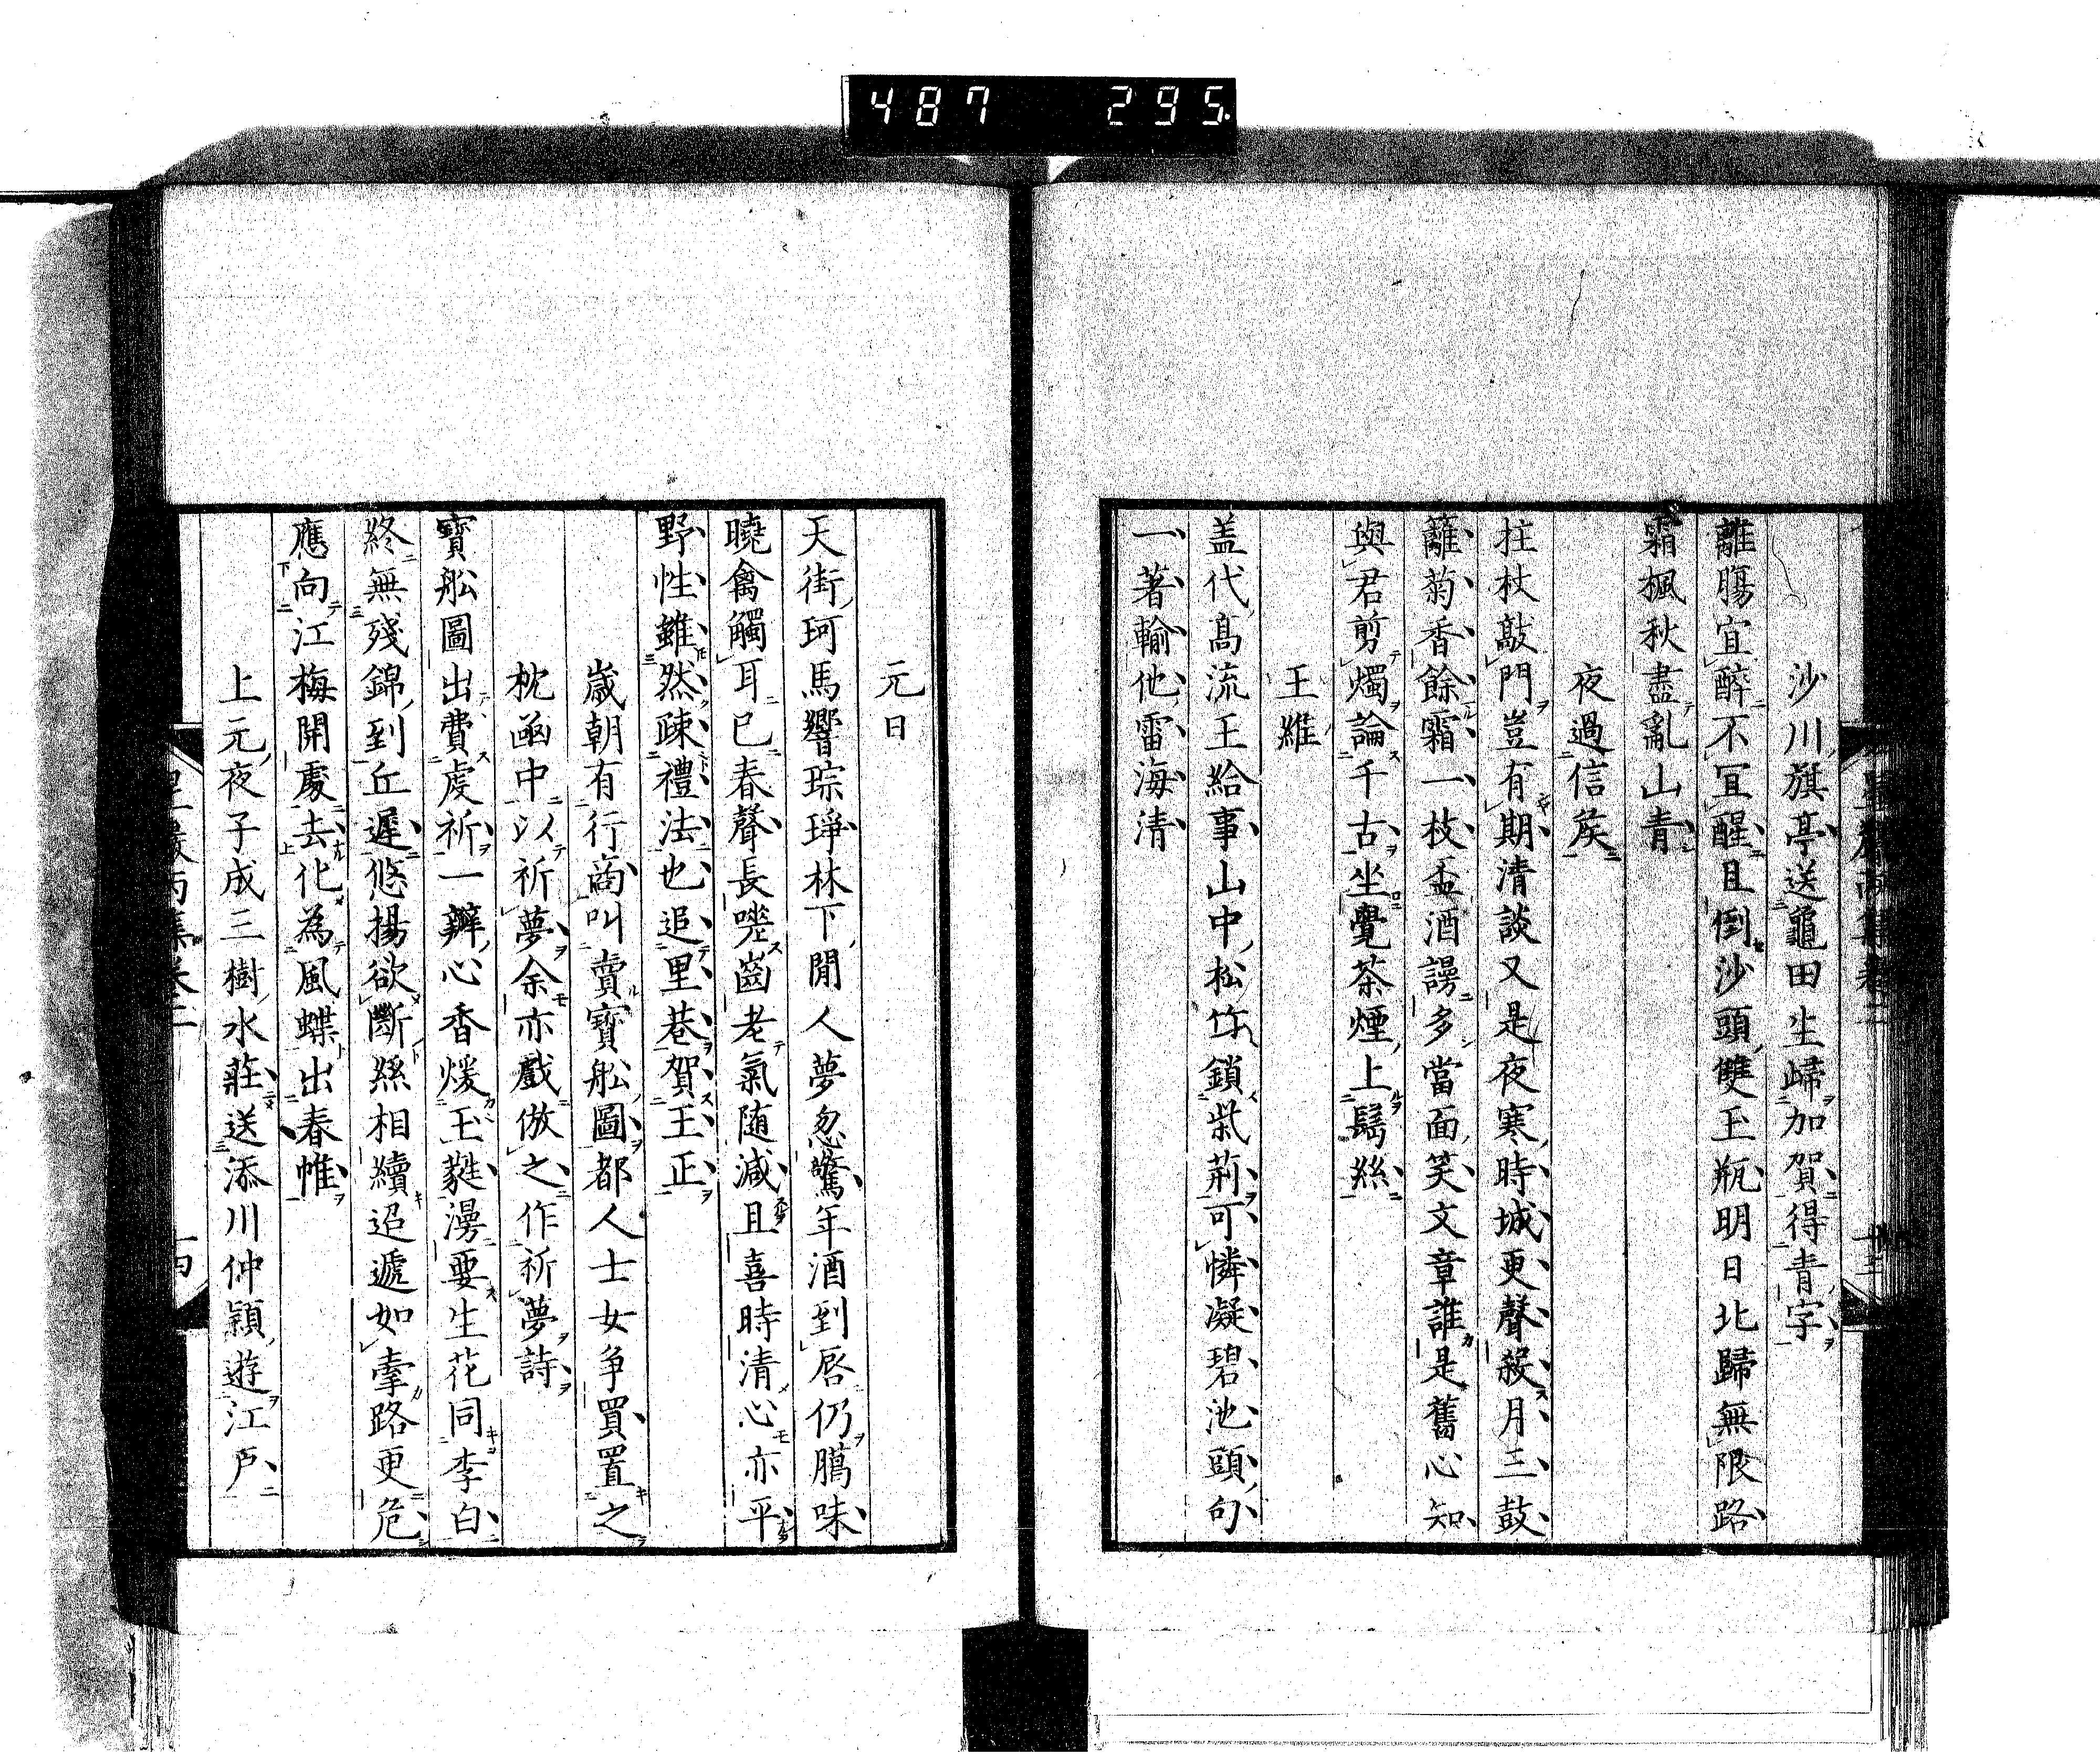 487 295
沙川旗亭送龜田生歸加賀得青字
離膓宜醉不冝醒且倒沙頭雙玉瓶明日北歸無限路
霜楓秋盡亂山青
夜過信矦
拄杖敲門豈有期清談又是夜寒時城更聲殺月三鼓
籬菊香餘霜一枝盃酒謾多當面笑文章誰是舊心知
與君剪燭論千古坐覺茶煙上鬂絲
王維
盖代高流王給事山中松竹鎖柴荊可憐凝碧池頭句
一著輸他雷海清
元日
天街珂馬響琮琤林下閒人夢忽驚年酒到唇仍臈味
曉禽觸耳已春聲長嗟齒老氣随減且喜時清心亦平
野性雖然疎禮法也追里巷賀王正
歳朝有行商叫賣寶舩圖都人士女争買置之
枕函中以祈夢余亦戲倣之作祈夢詩
寶舩圖出費虔祈一瓣心香煖玉蕤漫要生花同李白
終無殘錦到丘遲悠揚欲斷絲相續迢遞如牽路更危
應向江梅開處去化為風蝶出春帷
上元夜子成三樹水莊送添川仲頴遊江戸